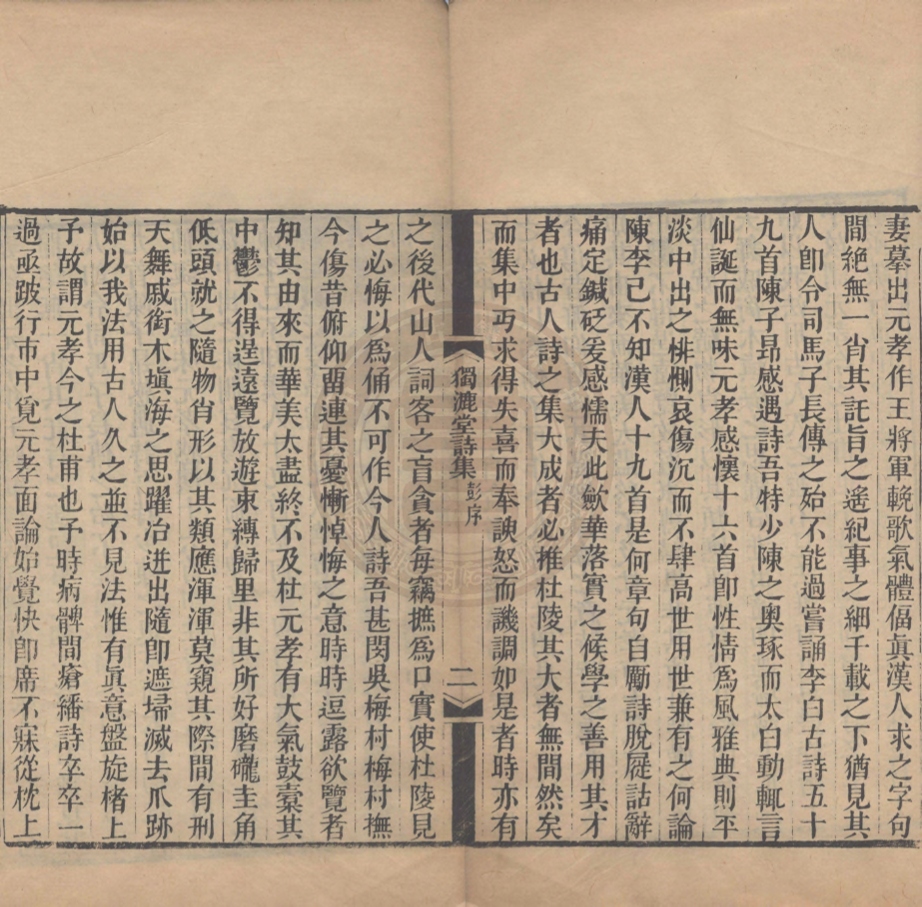 妻摹出元孝作王將軍輓歌氣體偪眞漢人求之字句
間絕無一肖其託旨之遙紀事之細千載之下猶見其
人卽令司馬子長傳之殆不能過嘗誦李白古詩五十
九首陳子昻感遇詩吾特少陳之奧琢而太白動輒言
仙誕而無味元孝感懷十六首卽性情爲風雅典則平
淡中出之悱惻哀傷沉而不肆高世用世兼有之何論
陳李已不知漢人十九首是何章句自勵詩脫屣詁辭
痛定鍼砭爰感懦夫此歛華落實之候學之善用其才
者也古人詩之集大成者必推杜陵其大者無間然矣
而集中丐求得失喜而奉諛怒而譏調如是者時亦有
獨漉堂詩集 彭序 二
之後代山人詞客之盲貪者每竊摭爲口實使杜陵見
之必悔以爲俑不可作今人詩吾甚閔吳梅村梅村撫
今傷昔俯仰畱連其憂慚悼悔之意時時逗露欲覽者
知其由來而華美太盡終不及杜元孝有大氣鼓橐其
中鬱不得逞遠覽放遊束縛歸里非其所好磨礲圭角
低頭就之隨物肖形以其類應渾渾莫窺其際間有刑
天舞戚銜木塡海之思躍冶迸出隨卽遮埽滅去爪跡
始以我法用古人久之並不見法惟有眞意盤旋楮上
予故謂元孝今之杜甫也予時病髀間瘡繙詩卒卒一
過亟跛行市中覓元孝面論始覺快卽席不寐從枕上